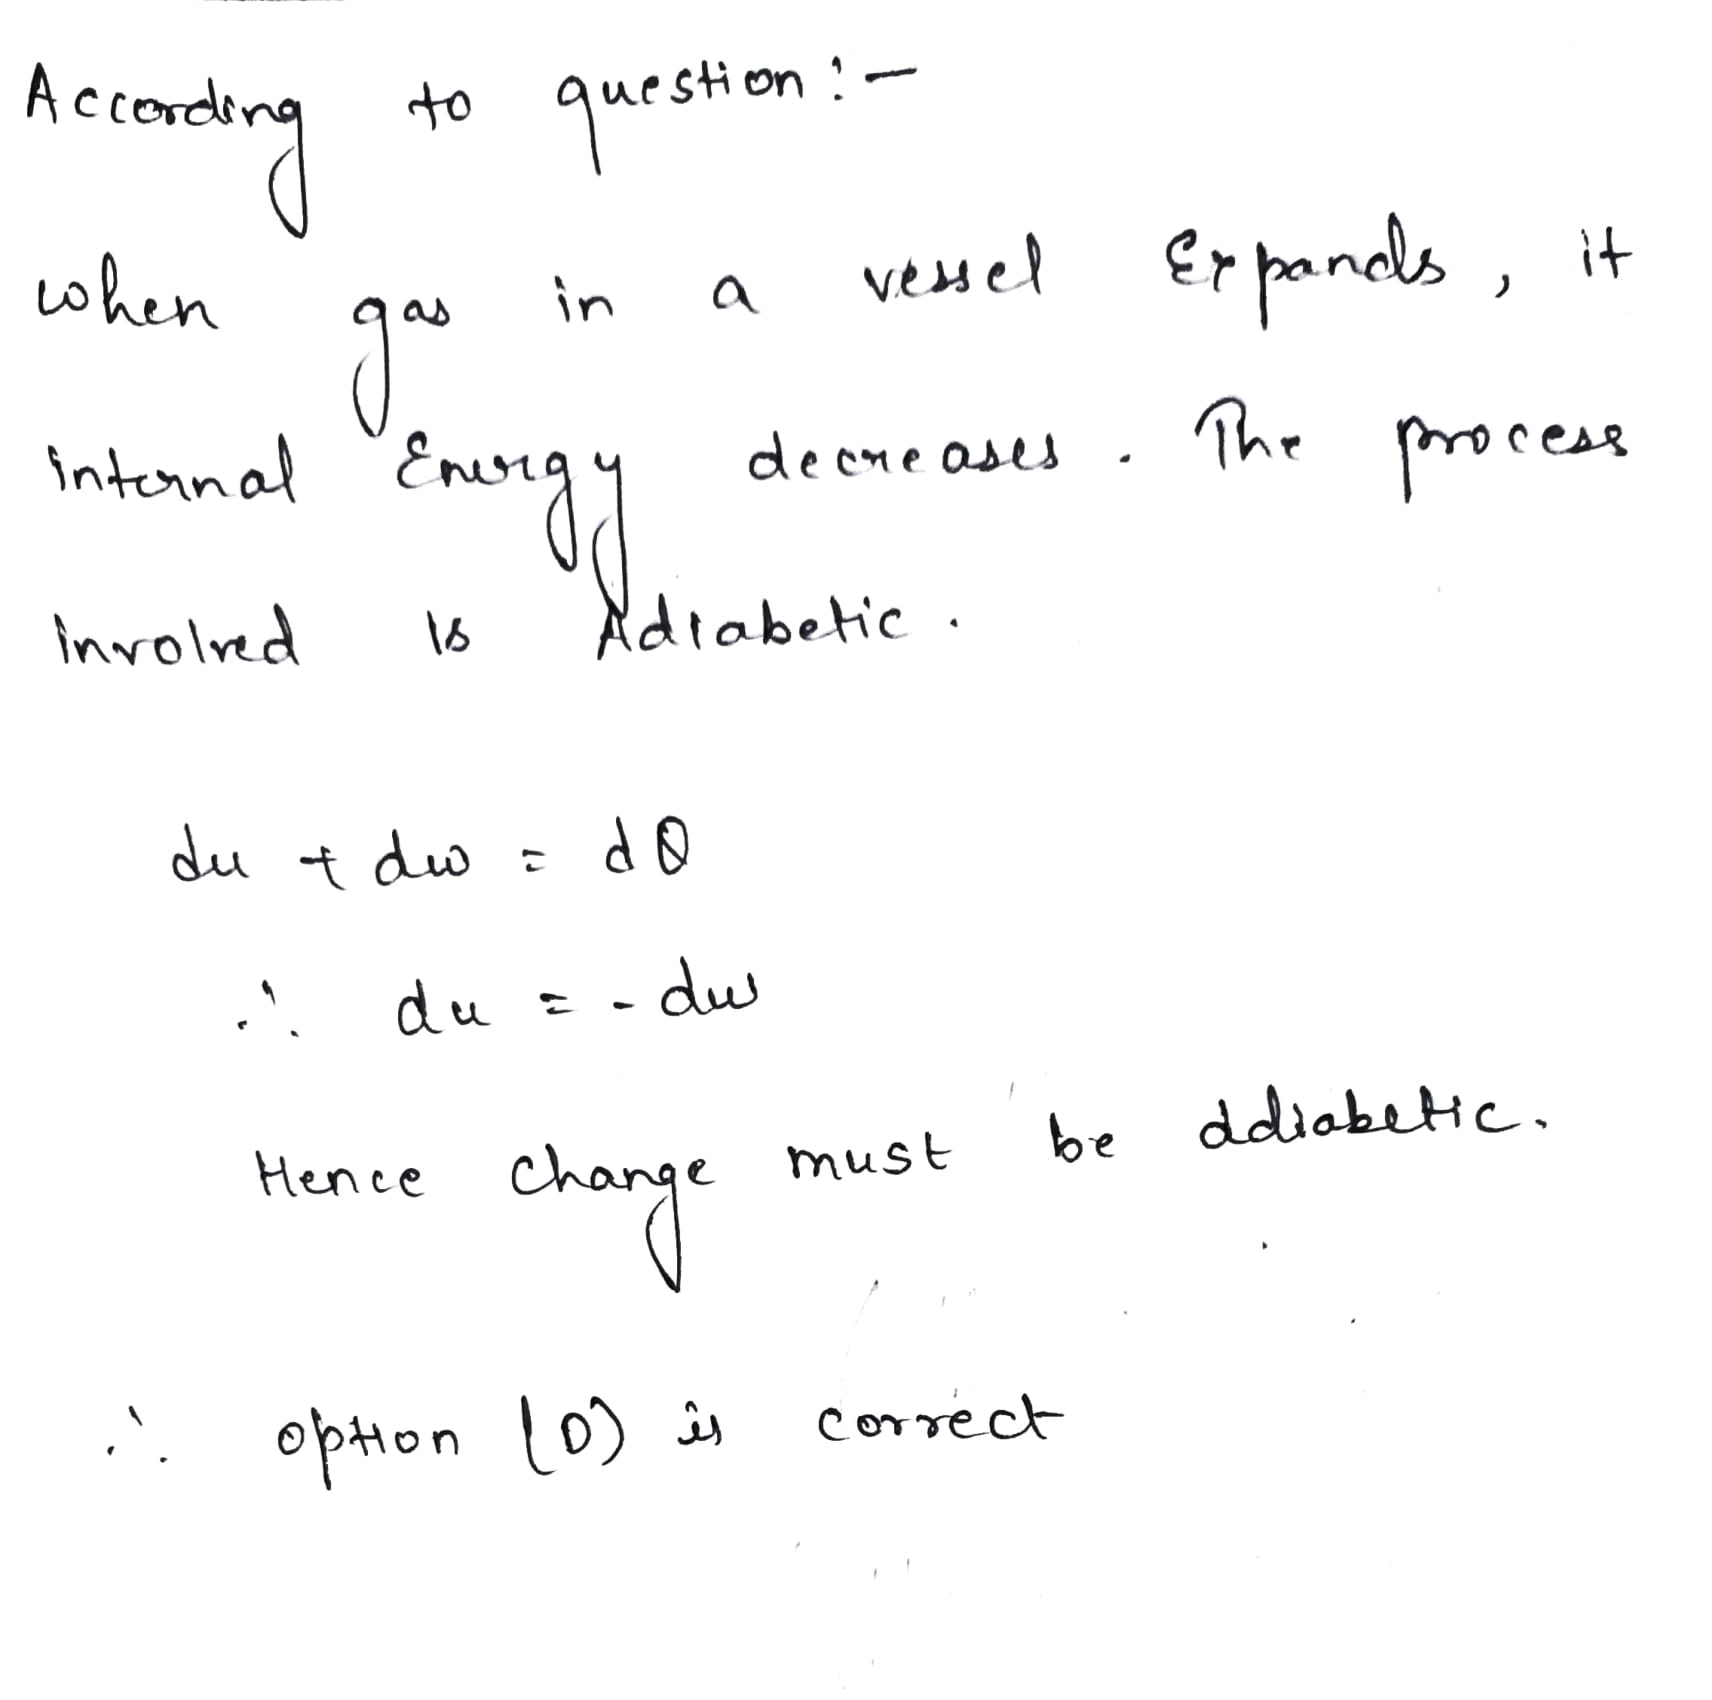 According to question :-
when gas in a vessel Expands, it
internal Energy decreases. The process
involved is Adiabetic.
du + dw = dQ
∴ du = - dw
Hence change must be adiabetic.
∴ option (D) is correct